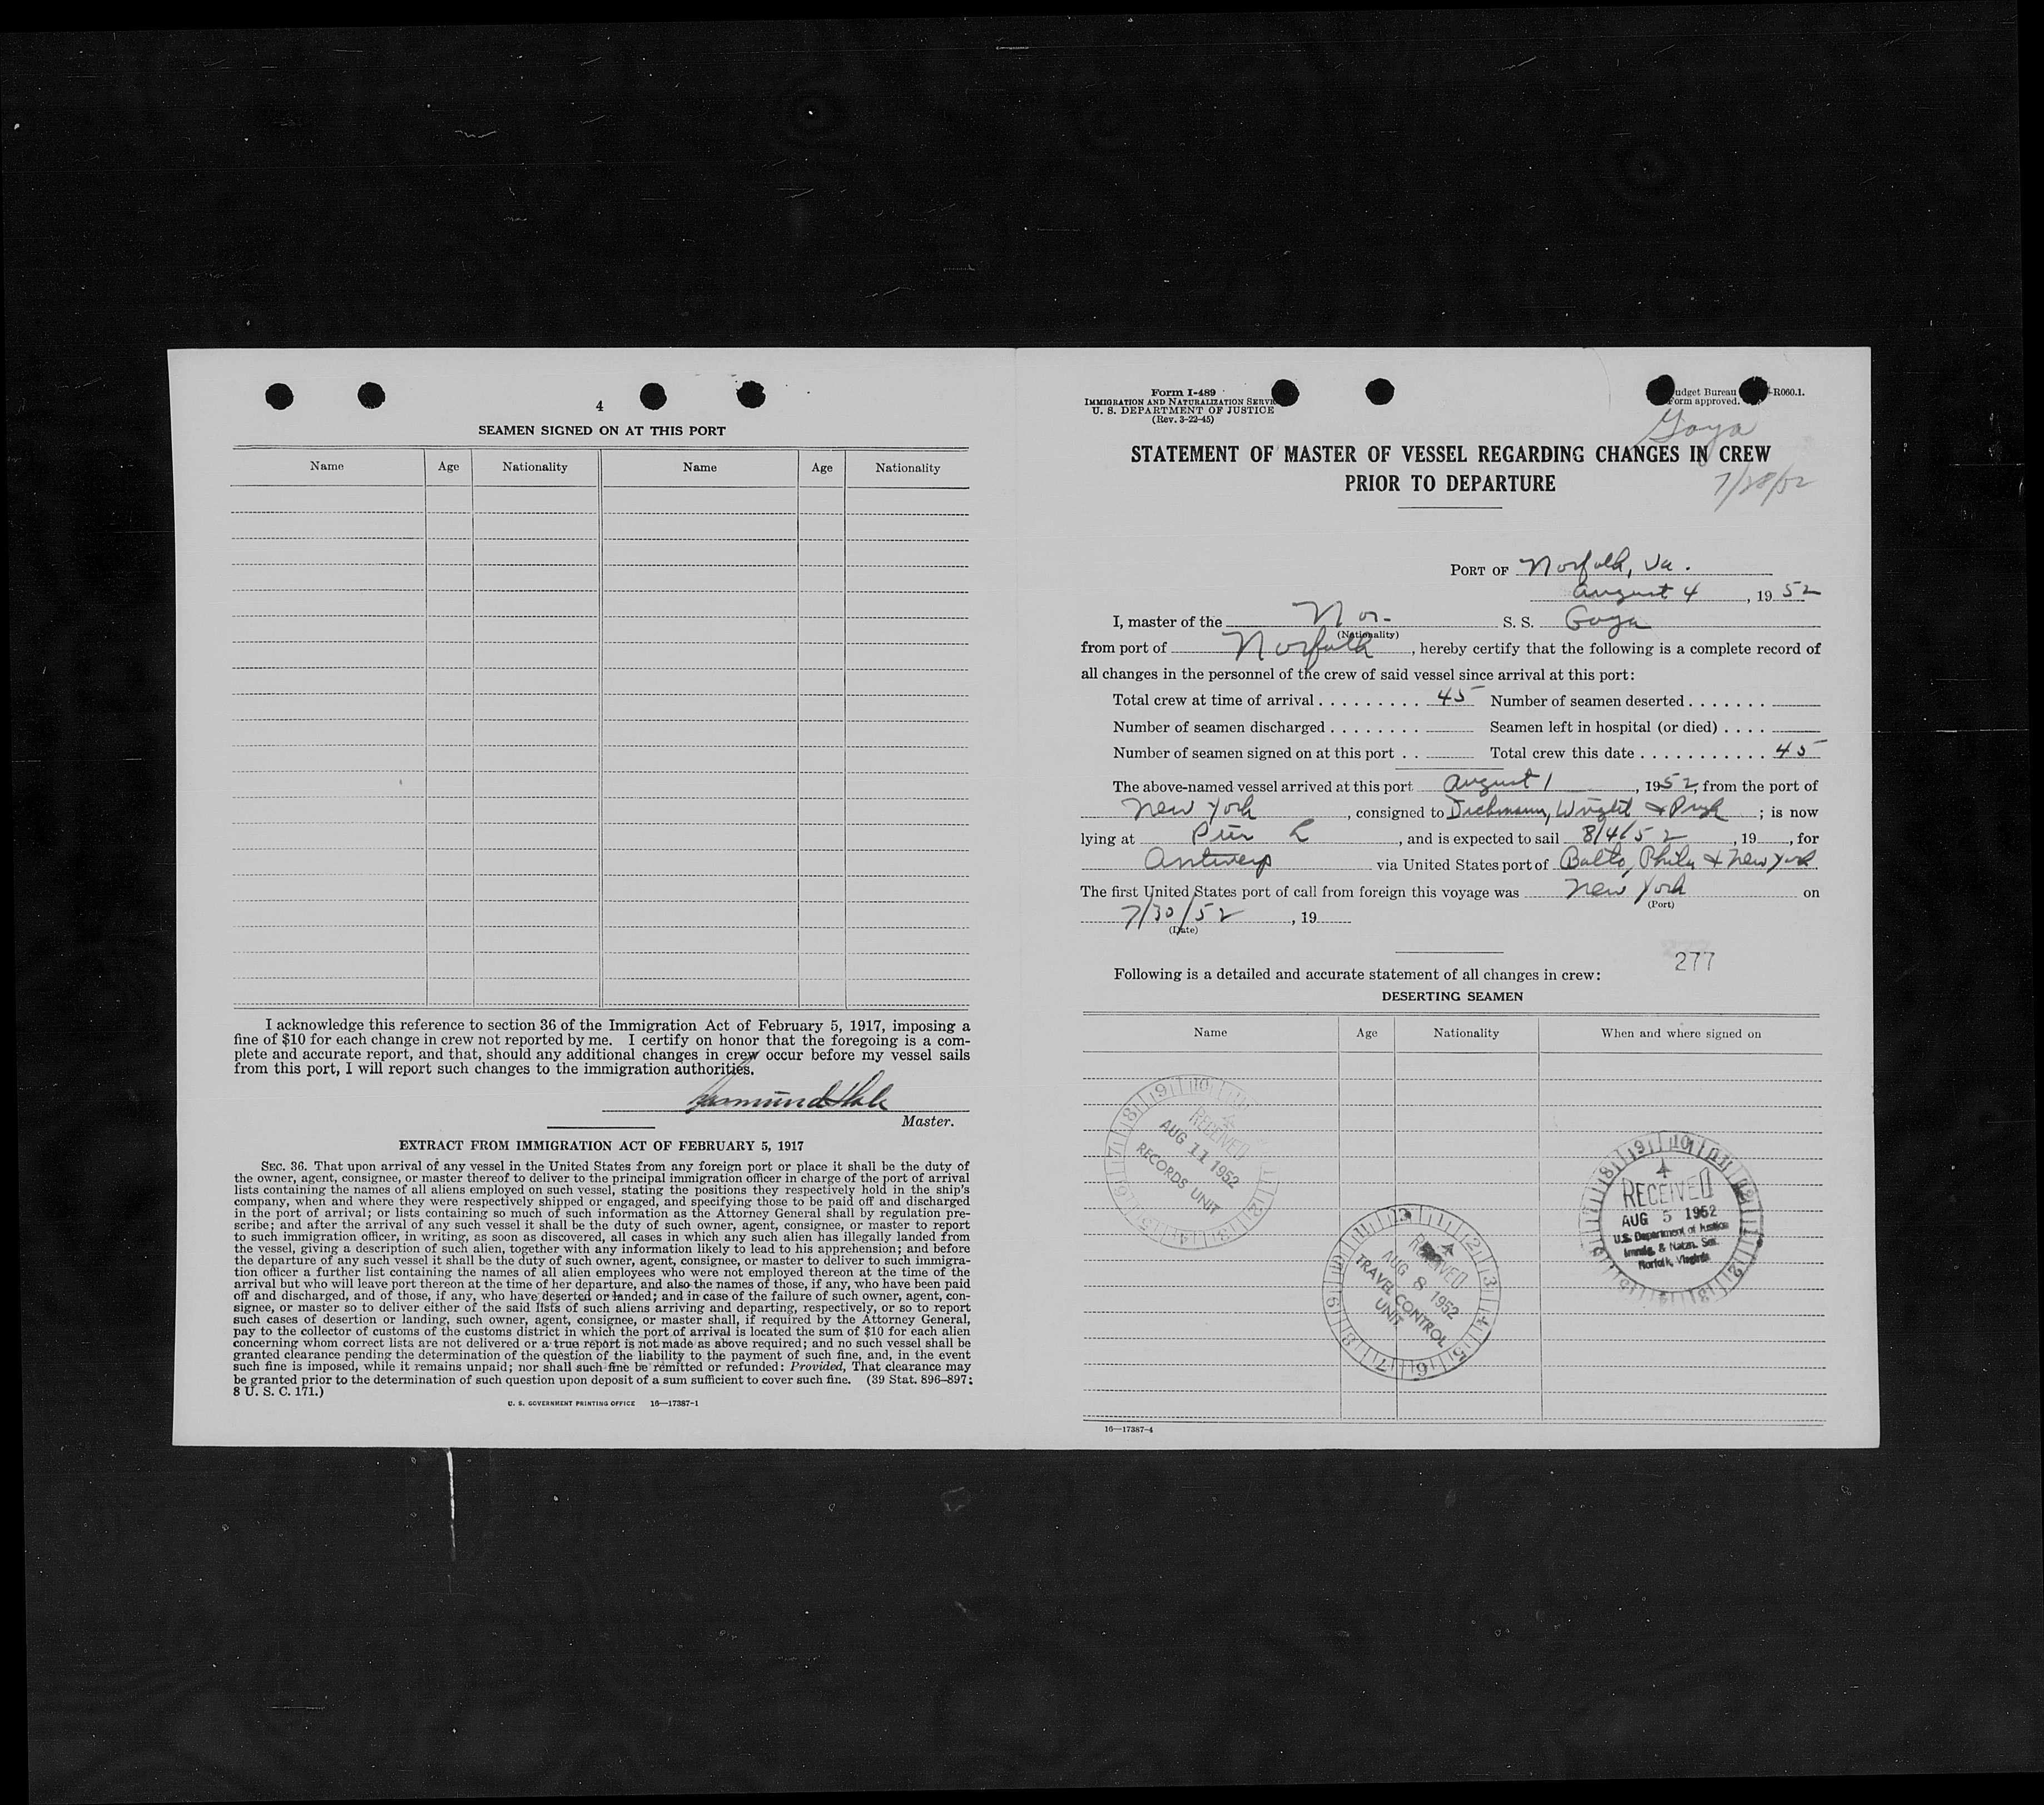 4
SEAMEN SIGNED ON AT THIS PORT
Name Age Nationality Name Age Nationality
I acknowledge this reference to section 36 of the Immigration Act of February 5, 1917, imposing a
fine of $10 for each change in crew not reported by me. I certify on honor that the foregoing is a com-
plete and accurate report, and that, should any additional changes in crew occur before my vessel sails
from this port, I will report such changes to the immigration authorities.
Master.
EXTRACT FROM IMMIGRATION ACT OF FEBRUARY 5, 1917
SEC. 36. That upon arrival of any vessel in the United States from any foreign port or place it shall be the duty of
the owner, agent, consignee, or master thereof to deliver to the principal immigration officer in charge of the port of arrival
lists containing the names of all aliens employed on such vessel, stating the positions they respectively hold in the ship's
company, when and where they were respectively shipped or engaged, and specifying those to be paid off and discharged
in the port of arrival; or lists containing so much of such information as the Attorney General shall by regulation pre-
scribe; and after the arrival of any such vessel it shall be the duty of such owner, agent, consignee, or master to report
to such immigration officer, in writing, as soon as discovered, all cases in which any such alien has illegally landed from
the vessel, giving a description of such alien, together with any information likely to lead to his apprehension; and before
the departure of any such vessel it shall be the duty of such owner, agent, consignee, or master to deliver to such immigra-
tion officer a further list containing the names of all alien employees who were not employed thereon at the time of the
arrival but who will leave port thereon at the time of her departure, and also the names of those, if any, who have been paid
off and discharged, and of those, if any, who have deserted or landed; and in case of the failure of such owner, agent, con-
signee, or master so to deliver either of the said lists of such aliens arriving and departing, respectively, or so to report
such cases of desertion or landing, such owner, agent, consignee, or master shall, if required by the Attorney General,
pay to the collector of customs of the customs district in which the port of arrival is located the sum of $10 for each alien
concerning whom correct lists are not delivered or a true report is not made as above required; and no such vessel shall be
granted clearance pending the determination of the question of the liability to the payment of such fine, and, in the event
such fine is imposed, while it remains unpaid; nor shall such fine be remitted or refunded: Provided, That clearance may
be granted prior to the determination of such question upon deposit of a sum sufficient to cover such fine. (39 Stat. 896–897;
8 U. S. C. 171.)
U. S. GOVERNMENT PRINTING OFFICE 16—17387-1
Form I-489
IMMIGRATION AND NATURALIZATION SERVI
U. S. DEPARTMENT OF JUSTICE
(Rev. 3-22-45)
udget Bureau -R060.1.
orm approved.
Goya
STATEMENT OF MASTER OF VESSEL REGARDING CHANGES IN CREW
PRIOR TO DEPARTURE
7/28/52
PORT OF Norfolk, Va.
August 4, 19 52
I, master of the Nor. S. S. Goya
(Nationality)
from port of Norfolk, hereby certify that the following is a complete record of
all changes in the personnel of the crew of said vessel since arrival at this port:
Total crew at time of arrival . . . . . . . . . 45 Number of seamen deserted . . . . . . .
Number of seamen discharged . . . . . . . . Seamen left in hospital (or died) . . . .
Number of seamen signed on at this port . . Total crew this date . . . . . . . . . . . 45
The above-named vessel arrived at this port August 1, 1952, from the port of
New York, consigned to Dichmann, Wright & Pugh; is now
lying at Pier L, and is expected to sail 8/4/52, 19, for
Antwerp via United States port of Balto, Phila & New York
The first United States port of call from foreign this voyage was New York on
(Port)
7/30/52, 19
(Date)
277
Following is a detailed and accurate statement of all changes in crew:
DESERTING SEAMEN
Name Age Nationality When and where signed on
RECEIVED
AUG 11 1952
RECORDS UNIT
RECEIVED
AUG 8 1952
TRAVEL CONTROL
UNIT
RECEIVED
AUG 5 1952
U.S. Department of Justice
Immig. & Natzn. Ser.
Norfolk, Virginia
16—17387-4